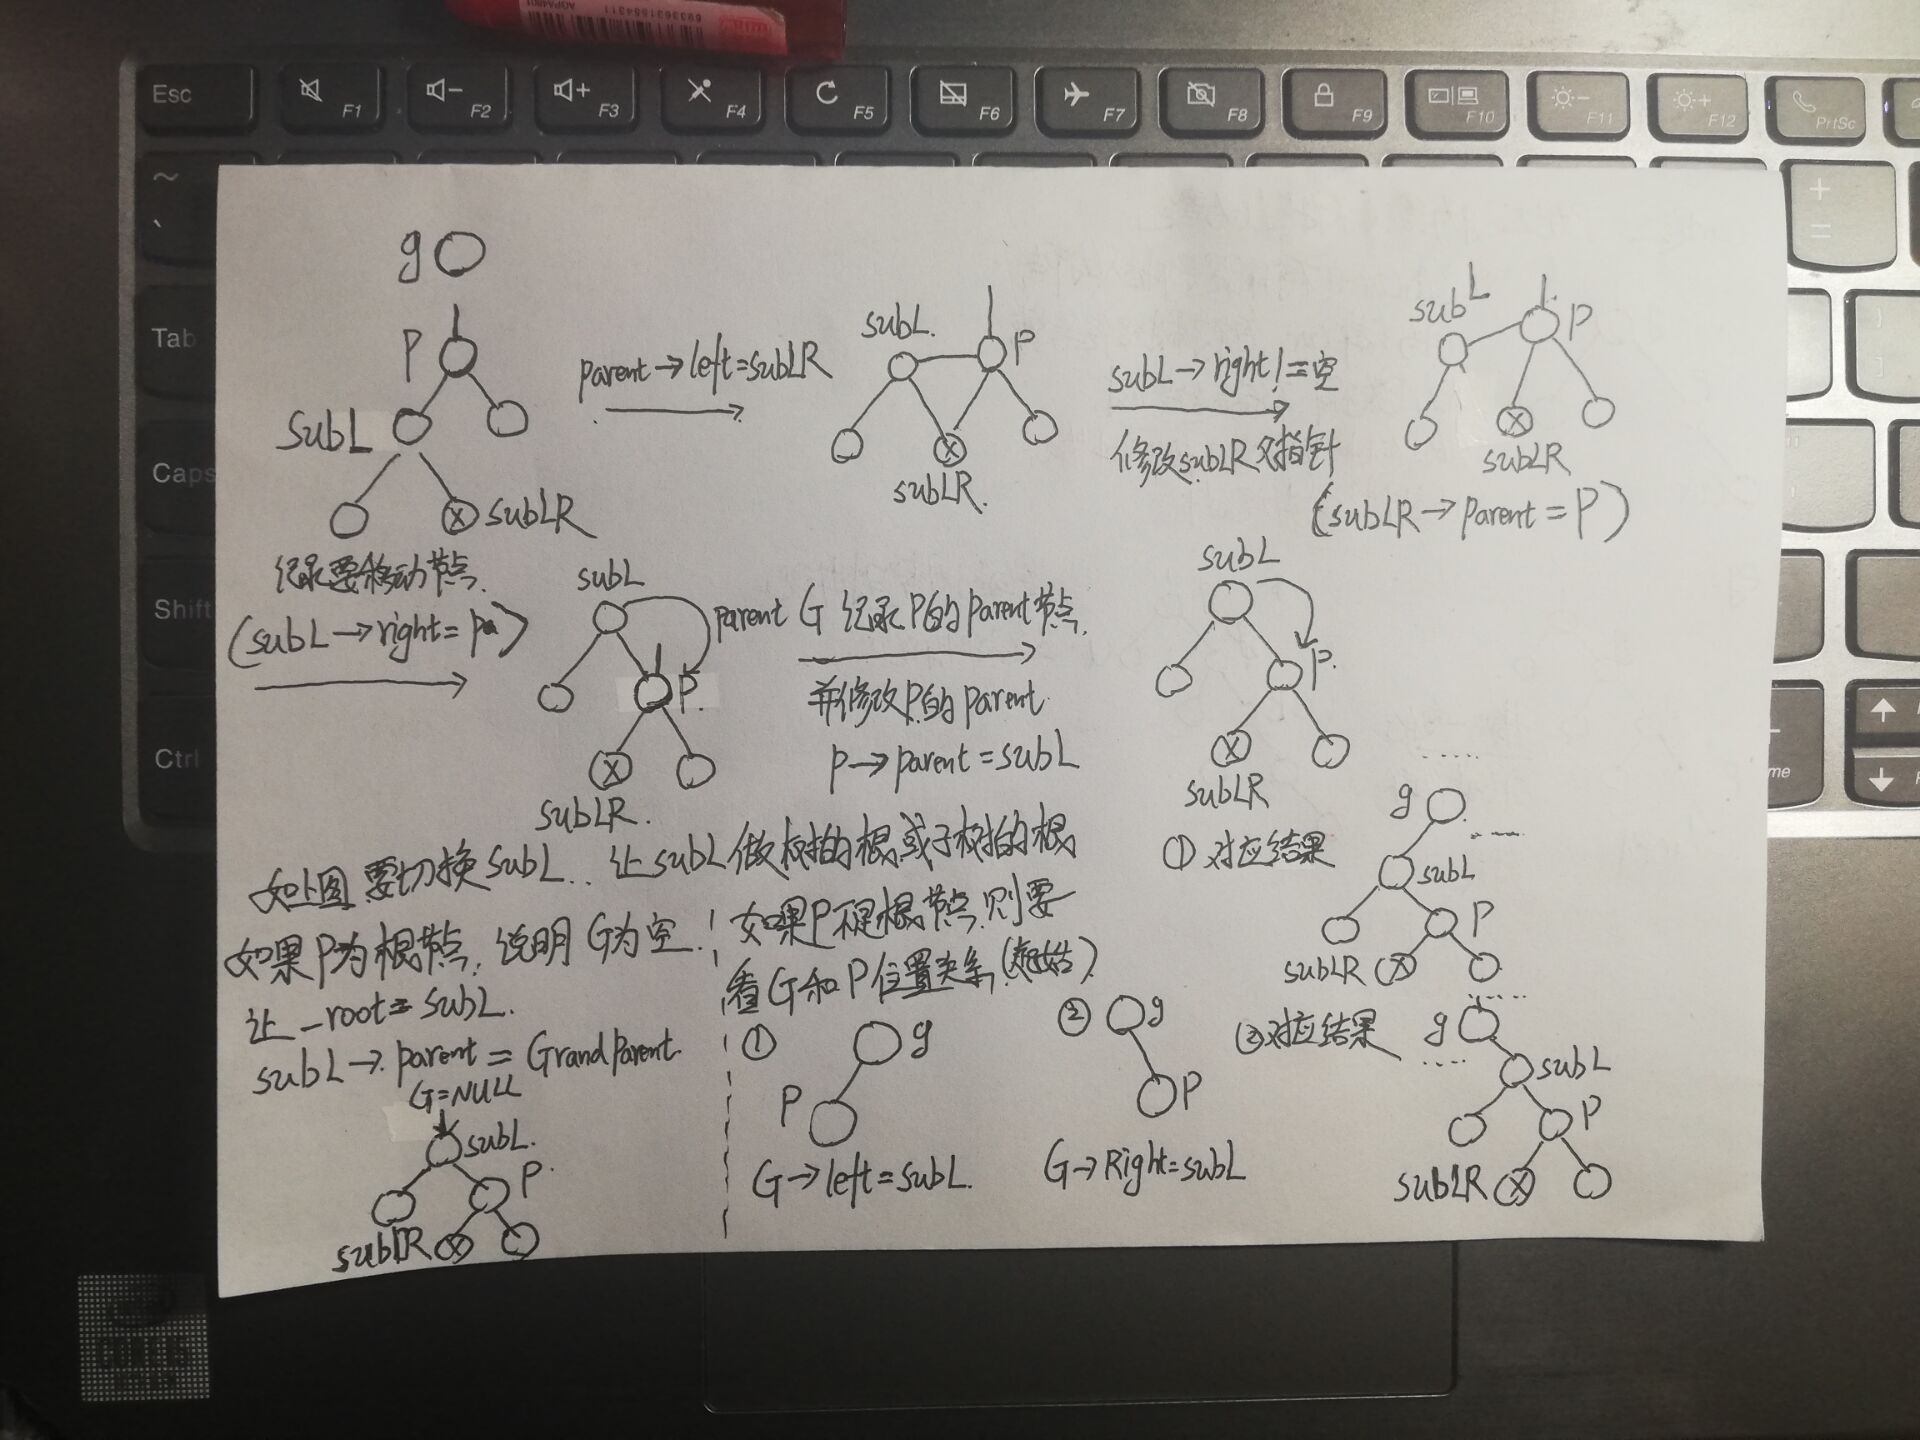 AGPA4801
6933631554311
Esc
F1
F2
F3
F4
F5
F6
F7
F8
F9
F10
F11
F12
PrtSc
~
`
+
=
Tab
Caps
Shift
Ctrl
g
P
subL
subLR
parent→left=subLR
subL.
P
subLR.
subL→right!=空
修改subLR父指针
subL
P
subLR
(subLR→parent=P)
记录要移动节点.
(subL→right=pa)
subL
P.
subLR.
parent G 记录P的parent节点.
并修改P的parent
P→parent=subL
subL
P.
subLR
如上图 要切换subL.. 让subL做树的根或子树的根
如果P为根节点, 说明G为空.
让_root=subL.
subL→parent=Grandparent.
G=NULL
subL.
P.
subLR
如果P不是根节点,则要
看G和P位置关系
① g
P
G→left=subL.
② g
P
G→Right=subL
①对应结果
g
subL
P
subLR
②对应结果
g
subL
P
subLR